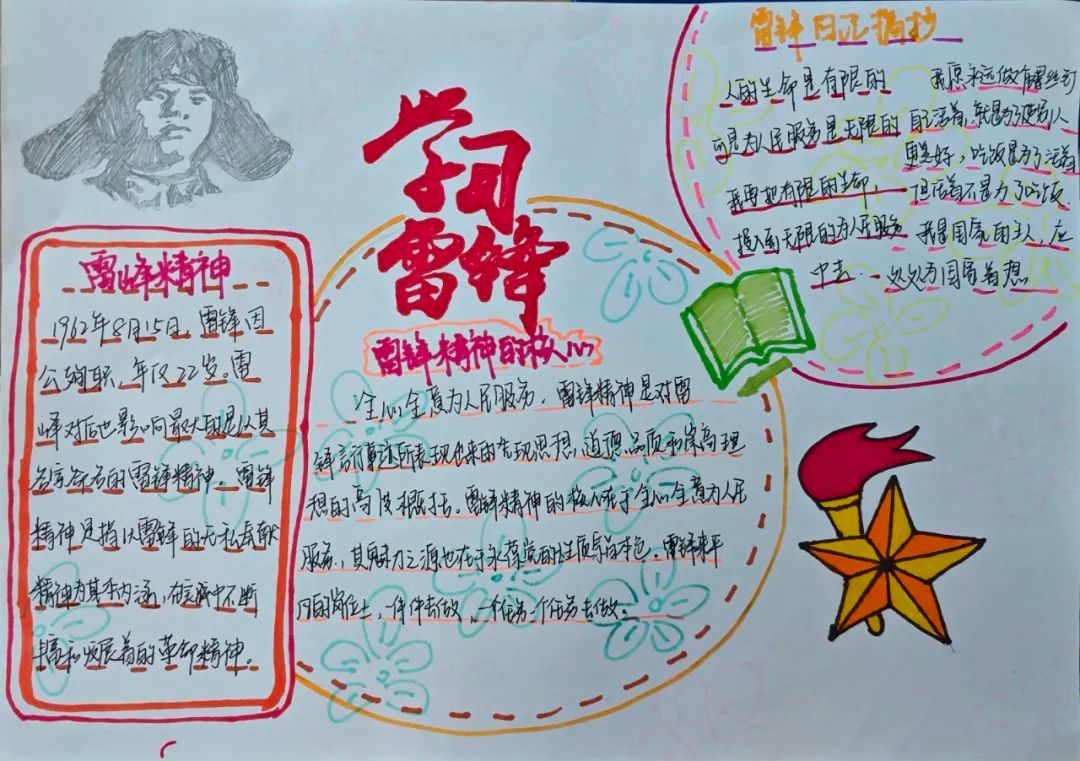 学习
雷锋
雷锋精神
1962年8月15日，雷锋因
公殉职，年仅22岁。雷
峰对后世影响最大的是以其
名字命名的雷锋精神。雷锋
精神是指以雷锋的无私奉献
精神为其本内涵，在实践中不断
丰富和发展着的革命精神。
雷锋精神的核心
全心全意为人民服务，雷锋精神是对雷
锋言行事迹所表现出来的先现思想，道德品质和崇高理
想的高度概括。雷锋精神的核心在于全心全意为人民
服务，其魅力之源也在于永葆党的性质与本色。雷锋在平
凡的岗位上，一件件去做，一个任务一个任务去做。
雷锋日记摘抄
人的生命是有限的
可是为人民服务是无限的
我要把有限的生命，
投入到无限的为人民服务
中去…
我愿永远做个螺丝钉
自己活着，就是为了使别人
更美好，吃饭是为了活着
但活着不是为了吃饭．
我是国家的主人，应
处处为国家着想